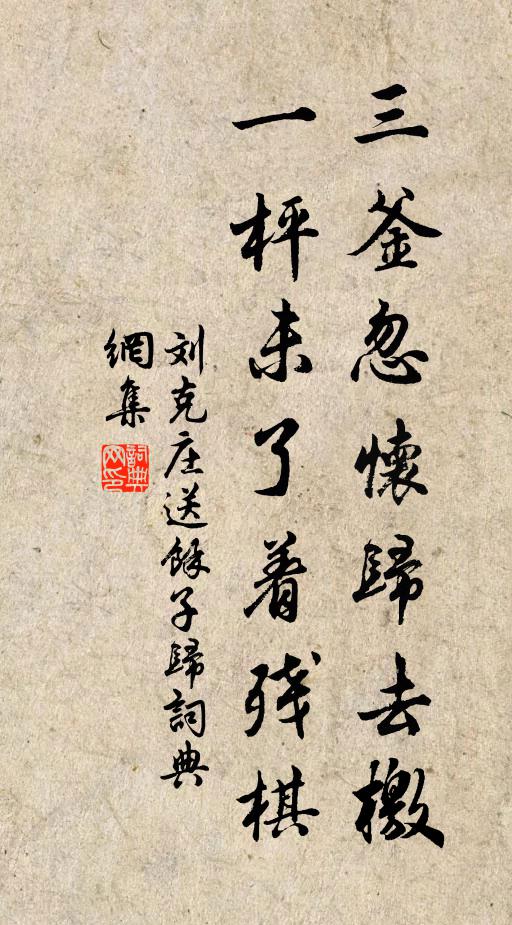 三釜忽懷歸去檄
一枰未了着残棋
刘克庄送餘子歸詞典
網集
詞典网印